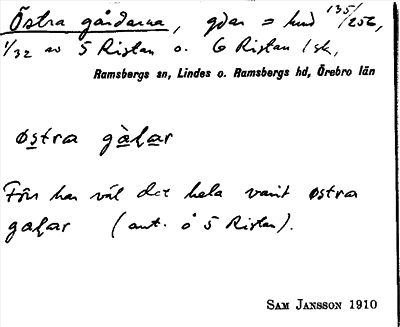 Östra gårdarna, gdar = hmd 135/256,
1/32 av 5 Ristan o. 6 Ristan 1 sk,
Ramsbergs sn, Lindes o. Ramsbergs hd, Örebro län
østra gàɽar
Förr har väl det hela varit østra
gaɽar (ant. å 5 Ristan).
SAM JANSSON 1910